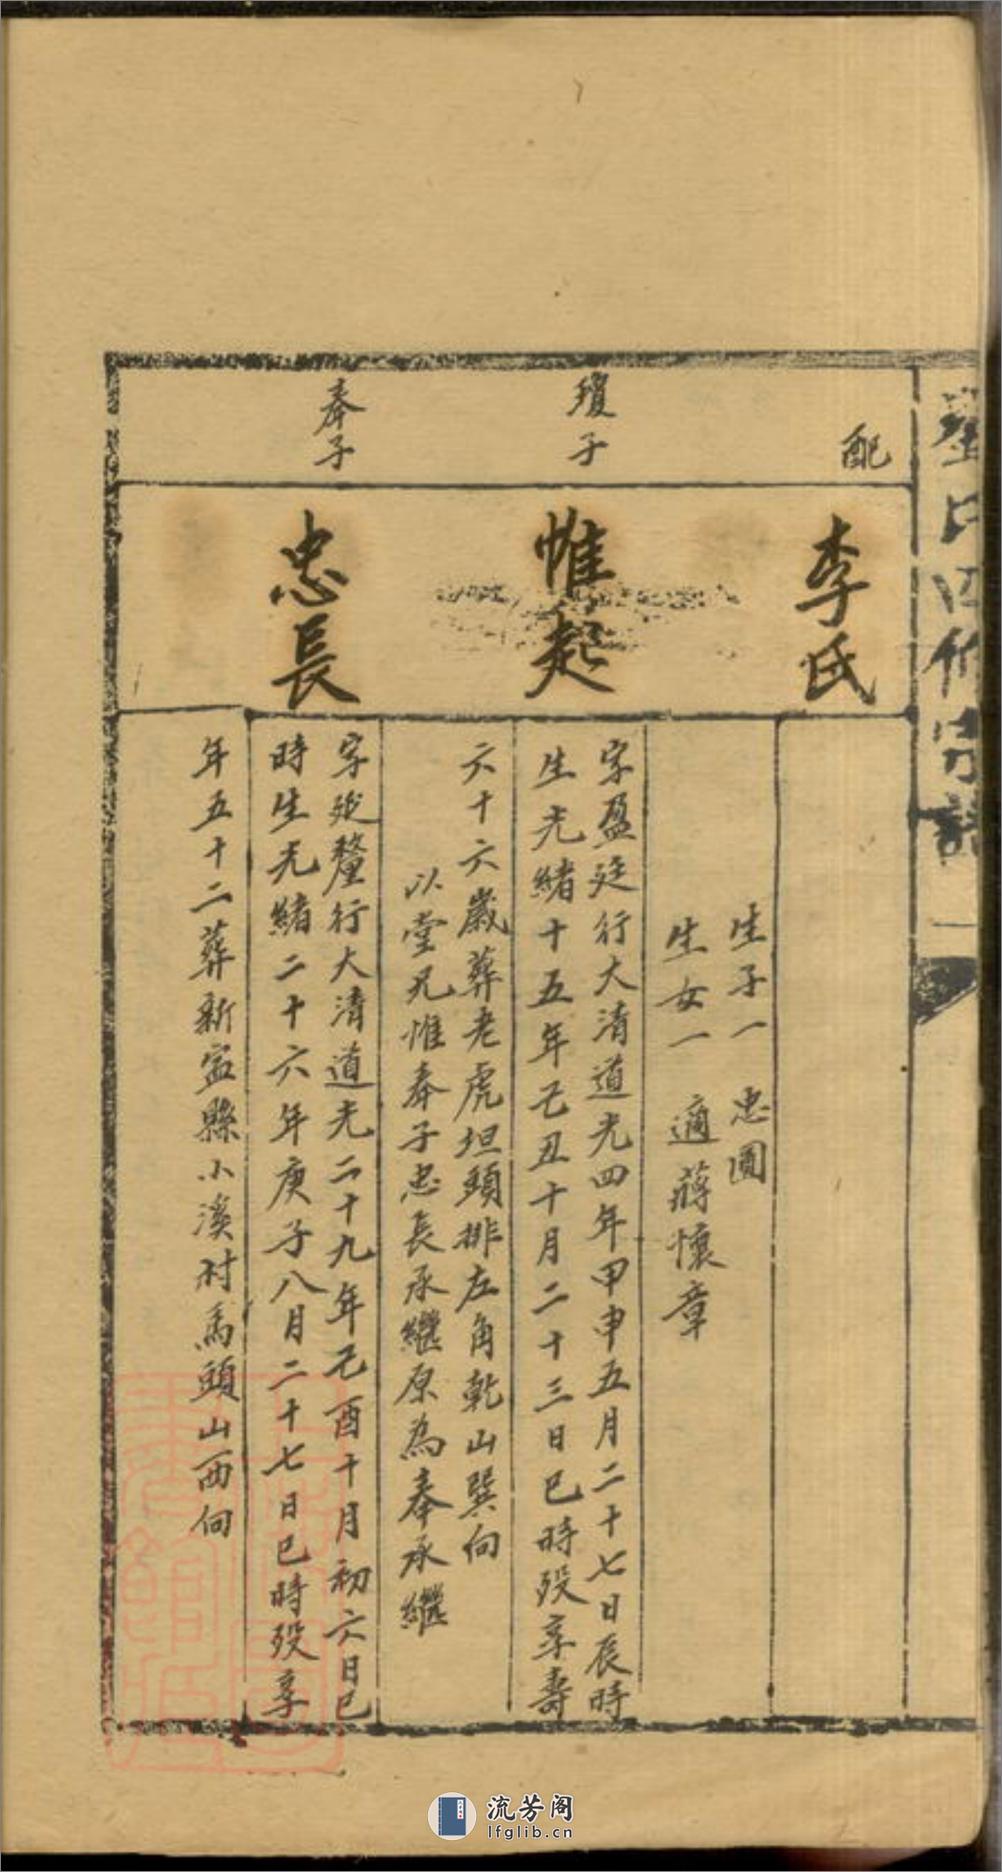 氏四修宗譜
配
李氏
生子一 忠圓
生女一 適蔣懷章
瓊子
惟起
字盈廷行大清道光四年甲申五月二十七日辰時
生光緒十五年己丑十月二十三日巳時殁享壽
六十六歲葬老虎坦頭排左角乾山巽向
以堂兄惟奉子忠長承繼原為奉承繼
奉子
忠長
字延釐行大清道光二十九年己酉十月初六日巳
時生光緒二十六年庚子八月二十七日巳時殁享
年五十二葬新寍縣小溪村馬頭山西向
流芳阁
lfglib.cn